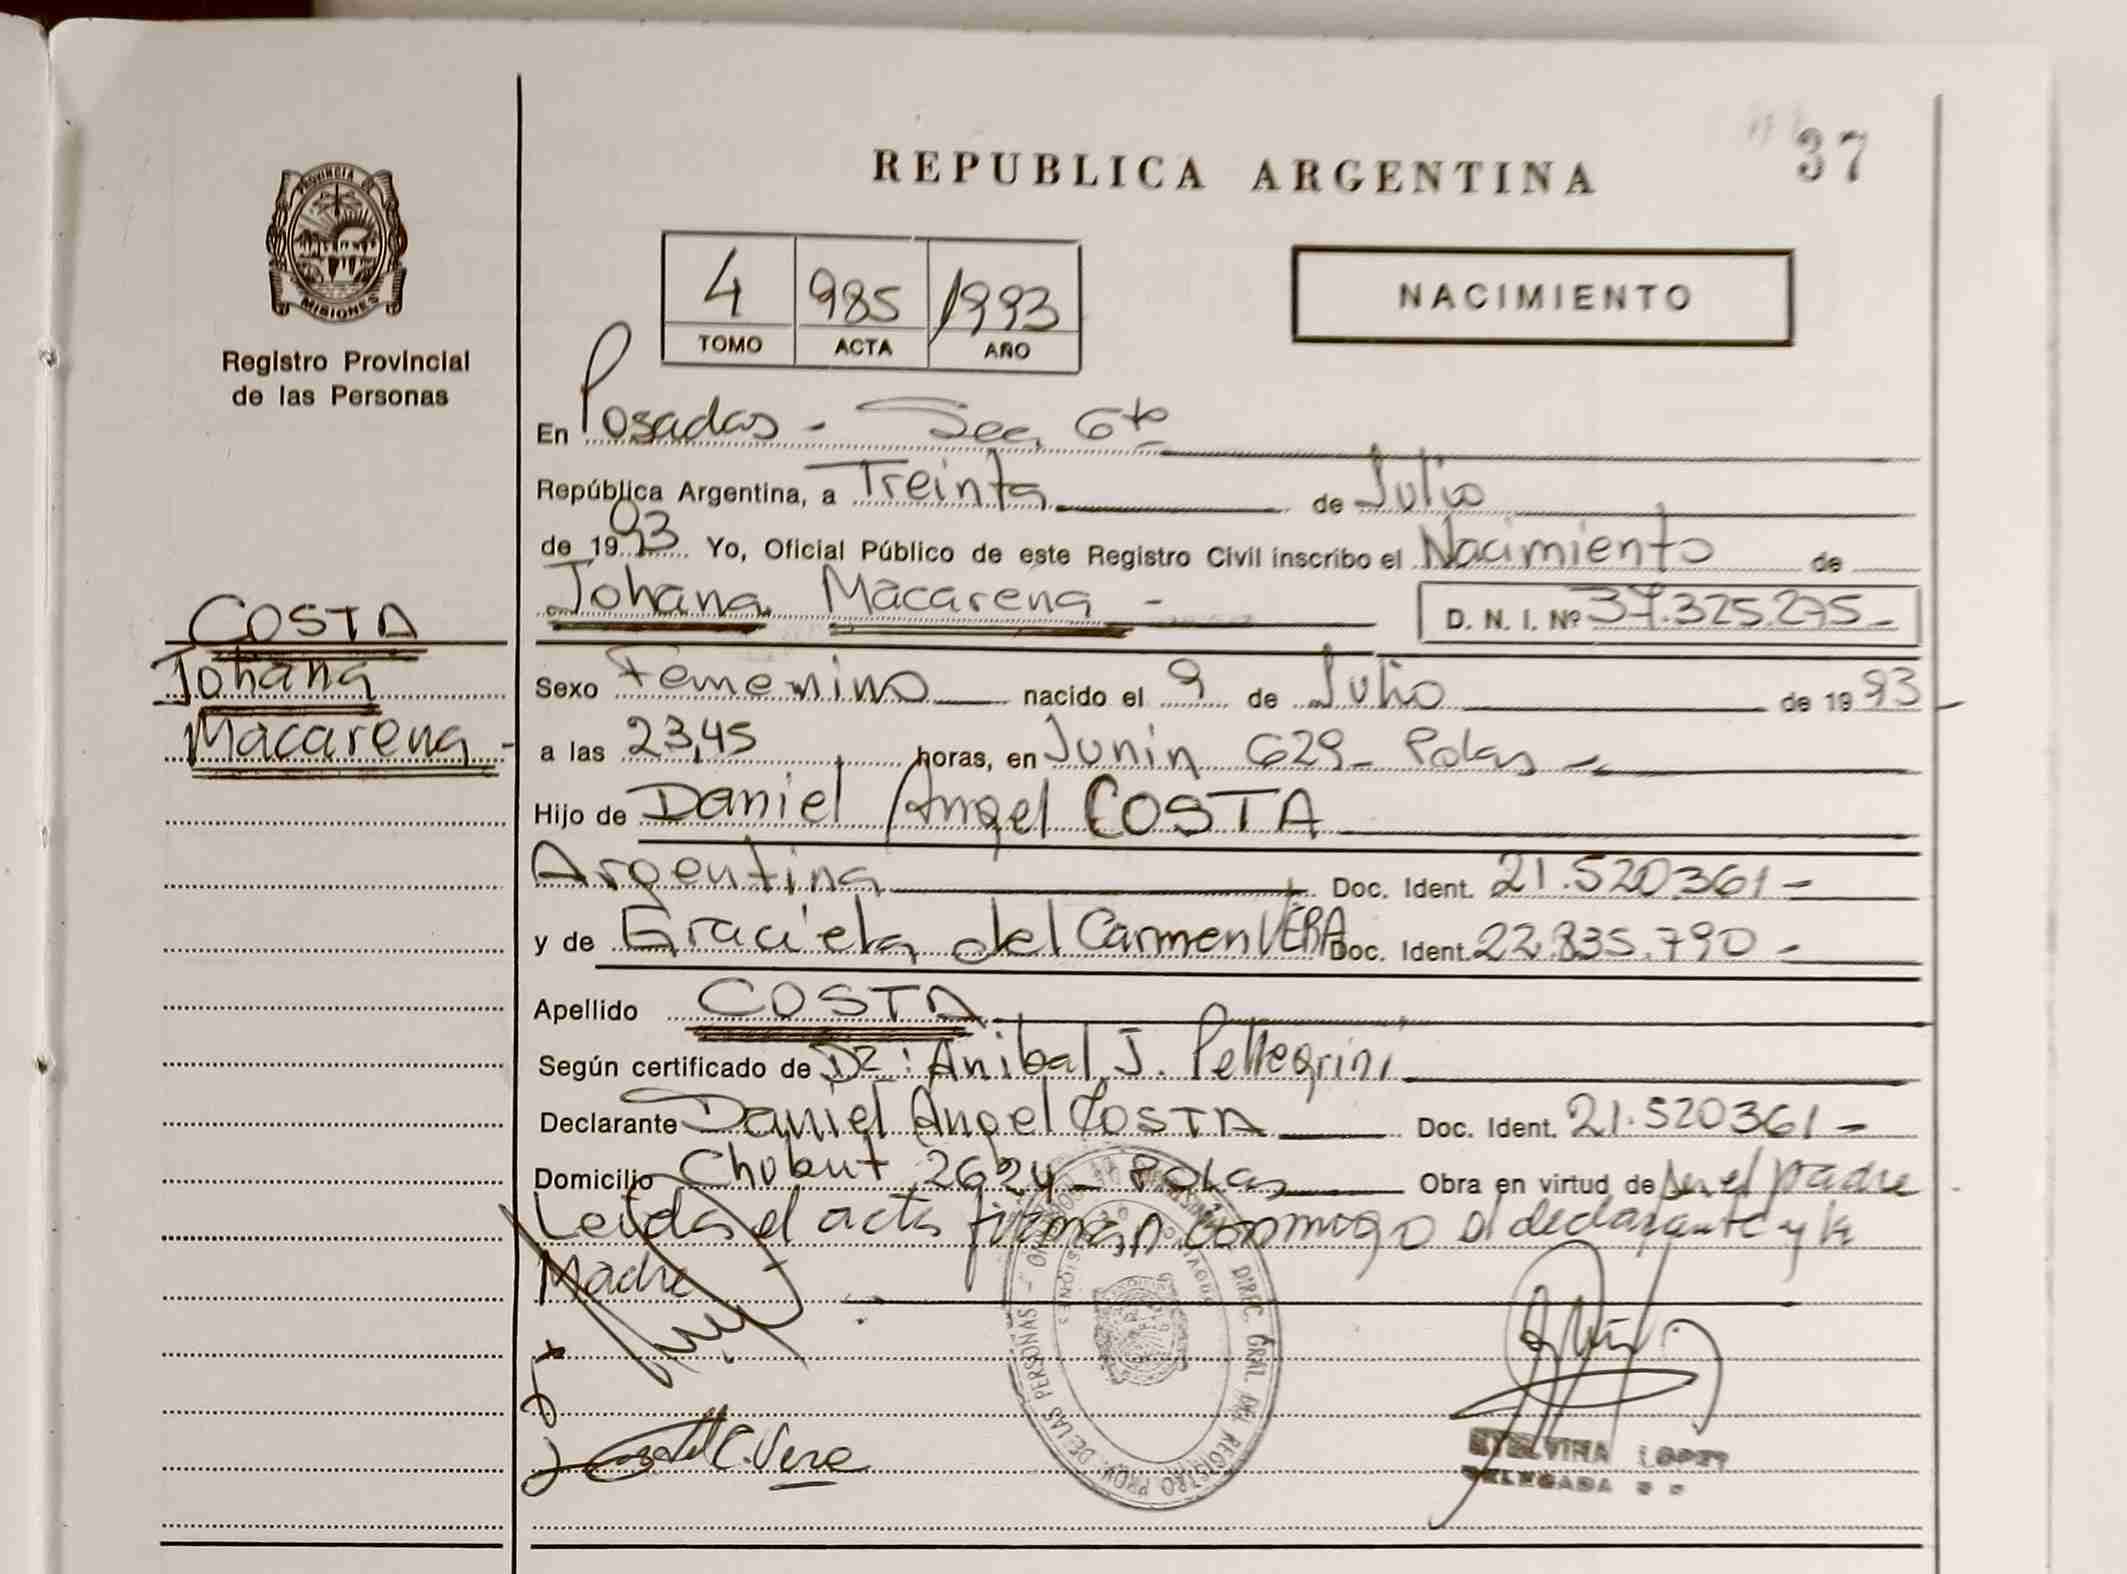 37
REPUBLICA ARGENTINA
PROVINCIA DE
MISIONES
Registro Provincial
de las Personas
4 985 1993
TOMO ACTA AÑO
NACIMIENTO
En Posadas - Sec. 6ta
República Argentina, a Treinta de Julio
de 1993 Yo, Oficial Público de este Registro Civil inscribo el Nacimiento de
Johana Macarena - D. N. I. Nº 37.325.275-
COSTA
Johana
Macarena -
Sexo Femenino nacido el 9 de Julio de 1993
a las 23,45 horas, en Junin 629- Pdas -
Hijo de Daniel Angel COSTA
Argentina Doc. Ident. 21.520361-
y de Graciela del Carmen VERA Doc. Ident. 22.835.790-
Apellido COSTA
Según certificado de Dr: Anibal J. Pellegrini
Declarante Daniel Angel COSTA Doc. Ident. 21.520361-
Domicilio Chubut 2624- Pdas Obra en virtud de ser el padre
Leida el acta firman conmigo el declarante y la
Madre
DIREC. GRAL. DEL REGISTRO PROV. DE LAS PERSONAS
C. Vera
LOPEZ
DELEGADA